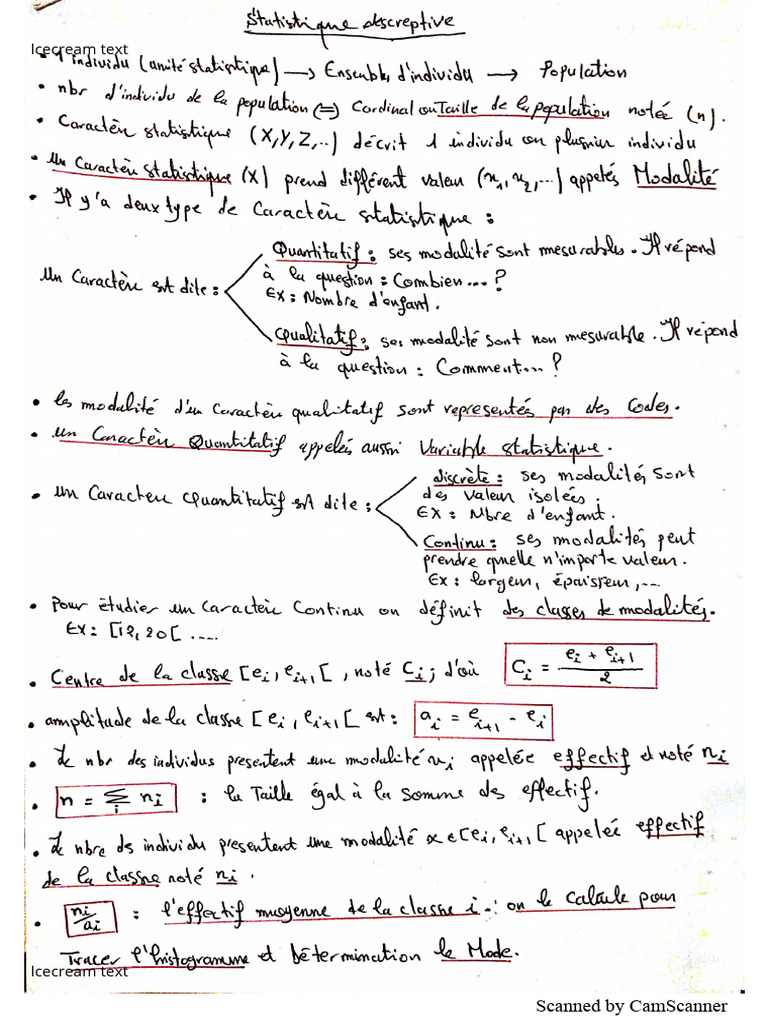 Statistique descreptive
Icecream text
• 1 individu (unité statistique) → Ensembles d'individu → Population
• nbr d'individu de la population (=) Cardinal ou Taille de la population notée (n).
• Caractèr statistique (X,Y,Z,..) décrit 1 individu ou plusniur individu
• Un Caractèr statistique (X) prend différent valeur (x₁, x₂, ...) appelés Modalité
• Il y'a deux type de Caractèr statistique :
Quantitatif : ses modalité sont mesurables. Il répond
à la question : Combien... ?
Ex : Nombre d'enfant.
Un Caractèr est dite :
Qualitatif : ses modalité sont non mesurable. Il répond
à la question : Comment... ?
• les modalité d'un Caractèr qualitatif sont representés par des Codes.
• un Caractèr Quantitatif appelés aussi Variable statistique.
discrète : ses modalités sont
des valeur isolées.
• un Caracteu quantitatif est dite :
Ex : Nbre d'enfant.
Continu : ses modalités peut
prendre quelle n'importe valeur.
Ex : largeur, épaisseur, ...
• Pour étudier un Caractèr Continu on définit des classes de modalités.
Ex : [12, 20[ ....
• Centre de la classe [eᵢ, eᵢ₊₁[ , noté Cᵢ ; d'où Cᵢ = (eᵢ + eᵢ₊₁)/2
• amplitude de la classe [eᵢ, eᵢ₊₁[ est : aᵢ = eᵢ₊₁ - eᵢ
• Le nbr des individus presentent une modalité xᵢ appelée effectif et noté nᵢ
• n = Σᵢ nᵢ : la Taille égal à la somme des effectif.
• Le nbre ds individu presentent une modalité x ∈ [eᵢ, eᵢ₊₁[ appelée effectif
de la classe noté nᵢ .
• nᵢ/aᵢ : l'effectif moyenne de la classe i : on le calcule pour
Tracer l'histogramme et détermination le Mode.
Icecream text
Scanned by CamScanner